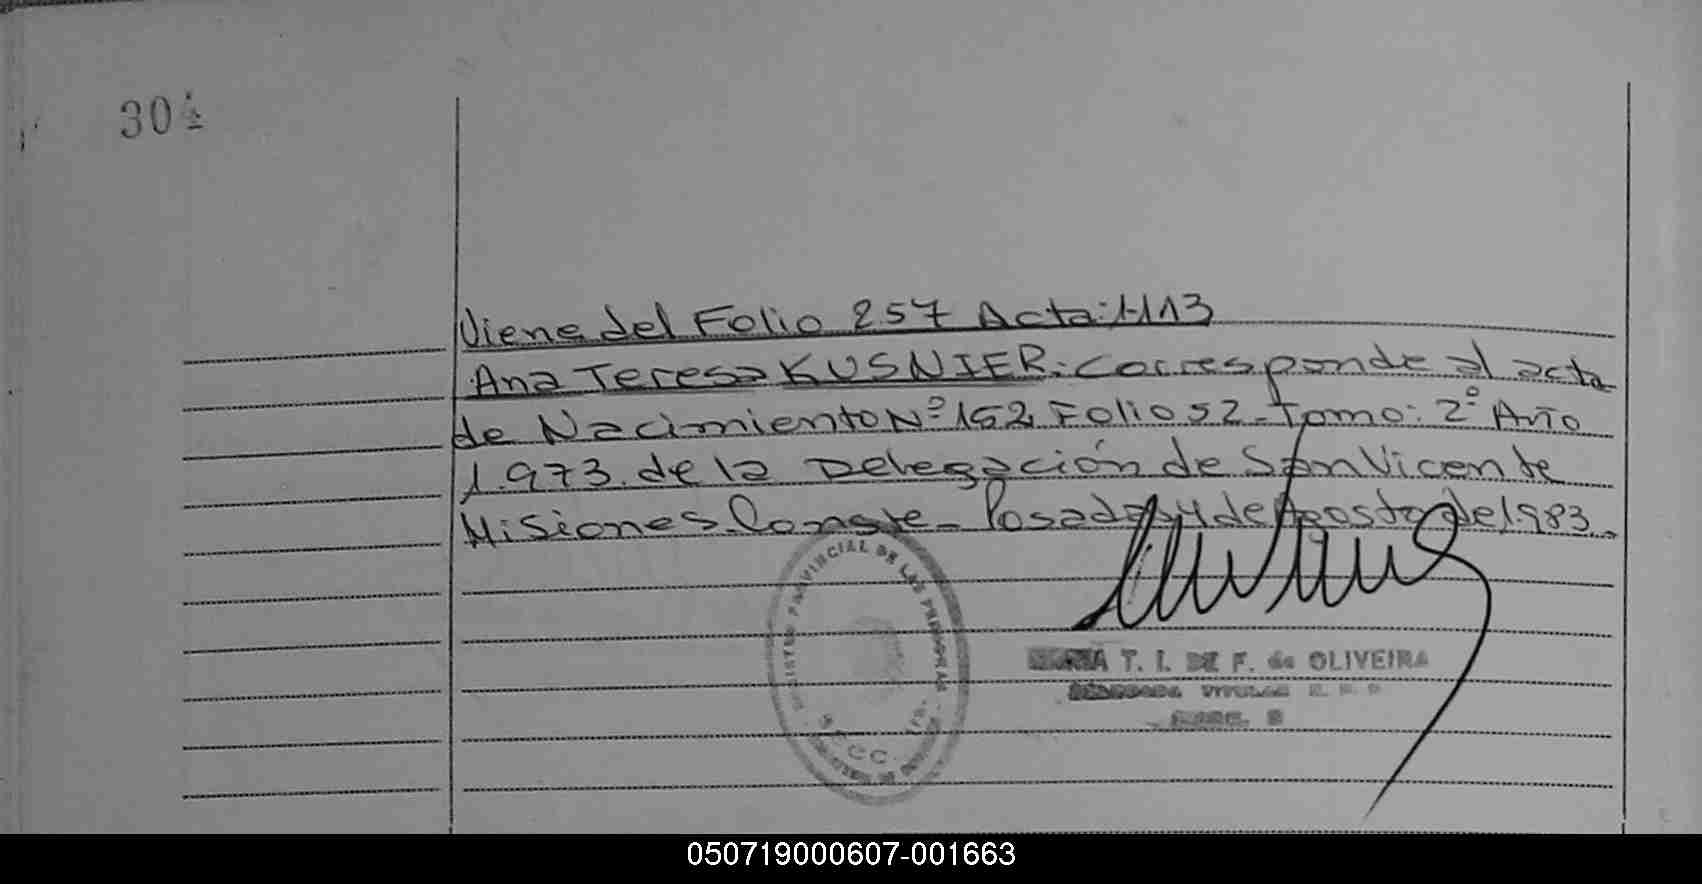 30
Viene del Folio 257 Acta: 1.113
Ana Teresa KUSNIER: Corresponde al acta
de Nacimiento Nº 152 Folio 52 - Tomo: 2º Año
1.973. de la Delegación de San Vicente
Misiones Conste - Posadas 4 de Agosto de 1.983.-
PROVINCIAL DE LAS PERSONAS
T. I. DE F. de OLIVEIRA
050719000607-001663